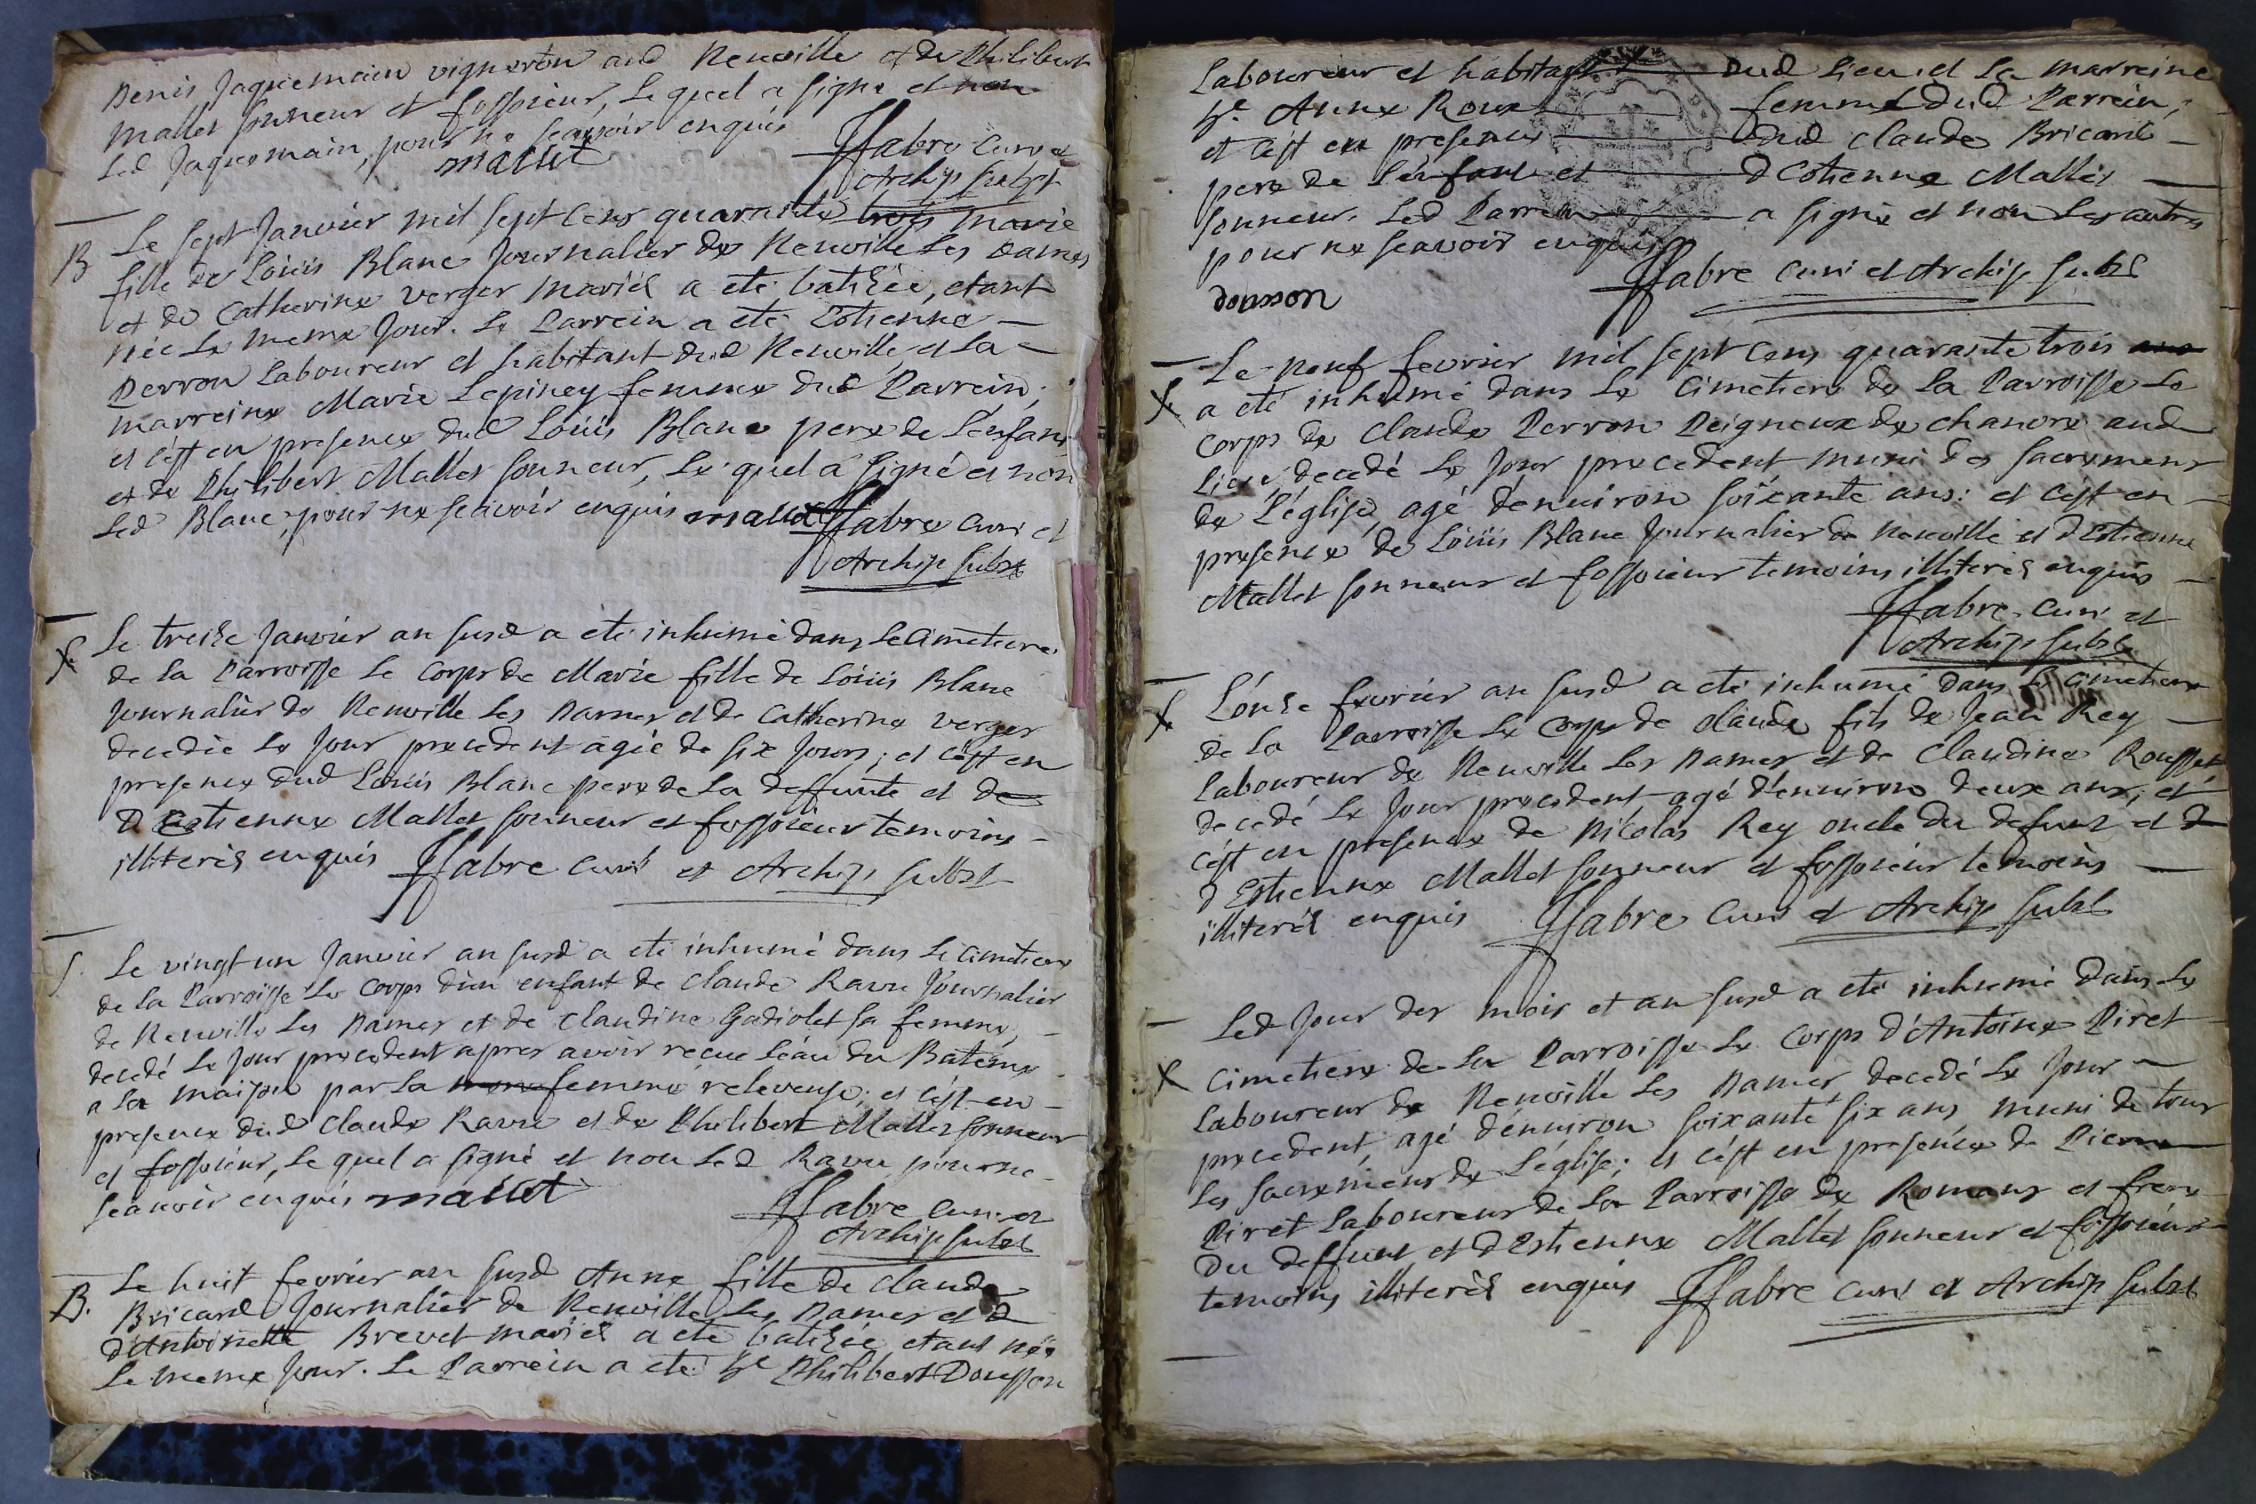 Denis Jaquemain vigneron aud Neuville et de Philibert
Mallet sonneur et fossoieur, Le quel a signé et non
Led Jaquemain, pour ne scavoir enquis
mallet
ffabre Curé et
Archip subst
B
Le sept Janvier mil sept cens quarante trois Marie
fille de Loüis Blanc Journalier de Neuville Les Dames
et de Catherine Verger mariés a eté batisée, etant
née Le meme Jour. Le Parrein a eté Estienne
Perron Laboureur et habitant dud Neuville, et La
marreine Marie Lepiney femme dud Parrein,
et c'est en presence dud Loüis Blanc pere de L'enfant
et de Philibert Mallet sonneur, Le quel a signé et non
Led Blanc, pour ne scavoir enquis mallet ffabre Curé et
Archip subst
S.
Le treise Janvier an susd a eté inhumé dans Le Cimetiere
de La Parroisse Le Corps de Marie fille de Loüis Blanc
Journalier de Neuville Les Dames et de Catherine Verger
decedée Le Jour precedent agée de six Jours; et c'est en
presence dud Loüis Blanc pere de La deffunte et de
d'Estienne Mallet sonneur et fossoieur temoins
illiterés enquis ffabre Curé et Archip subst
S.
Le vingt un Janvier an susd a eté inhumé dans Le Cimetiere
de La Parroisse Le Corps d'un enfant de Claude Ravu Journalier
de Neuville Les Dames et de Claudine Gadiolet sa femme,
decedé Le Jour precedent apres avoir recue L'eau du Bateme
a La maison par La femme releveuse; et c'est en
presence dud Claude Ravu et de Philibert Mallet sonneur
et fossoieur, Le quel a signé et non Led Ravu pour ne
scavoir enquis mallet
ffabre Curé et
Archip subst
B.
Le huit fevrier an susd Anne fille de Claude
Bricard Journalier de Neuville Les Dames et d
d'Antoinette Brevet mariés a eté batisée etant née
Le meme Jour. Le Parrein a eté Sr Philibert Dousson
Laboureur et habitant dud Lieu et La marreine
Sr. Anne Roux femme dud Parrein,
et c'est en presence dud Claude Bricard
pere de L'enfant et d'Estienne Mallet
sonneur. Led Parrein a signé et non Les autres
pour ne scavoir enquis
ffabre Curé et Archip subst
dousson
S.
Le neuf fevrier mil sept cens quarante trois
a eté inhumé dans Le Cimetiere de La Parroisse Le
Corps de Claude Perron Peigneur de chanvre aud
Lieu, decedé Le Jour precedent muni des sacremens
de L'église, agé d'environ soixante ans: et c'est en
presence de Loüis Blanc Journalier de Neuville et d'Estienne
Mallet sonneur et fossoieur temoins illiterés enquis
ffabre Curé et
Archip subst
S.
L'onse fevrier an susd a eté inhumé dans Le Cimetiere
de La Parroisse Le Corps de Claude fils de Jean Rey
Laboureur de Neuville Les Dames et de Claudine Rousset
decedé Le Jour precedent agé d'environ deux ans, et
c'est en presence de Nicolas Rey oncle du defunt et d
d'Estienne Mallet sonneur et fossoieur temoins
illiterés enquis ffabre Curé et Archip subst
S.
Led Jour des mois et an susd a eté inhumé dans Le
Cimetiere de La Parroisse Le Corps d'Antoine Piret
Laboureur de Neuville Les Dames, decedé Le Jour
precedent, agé d'environ soixante six ans muni de tous
Les sacremens de L'église; et c'est en presence de Pierre
Piret Laboureur de La Parroisse de Romans et frere
du deffunt et d'Estienne Mallet sonneur et fossoieur
temoins illiterés enquis ffabre Curé et Archip subst